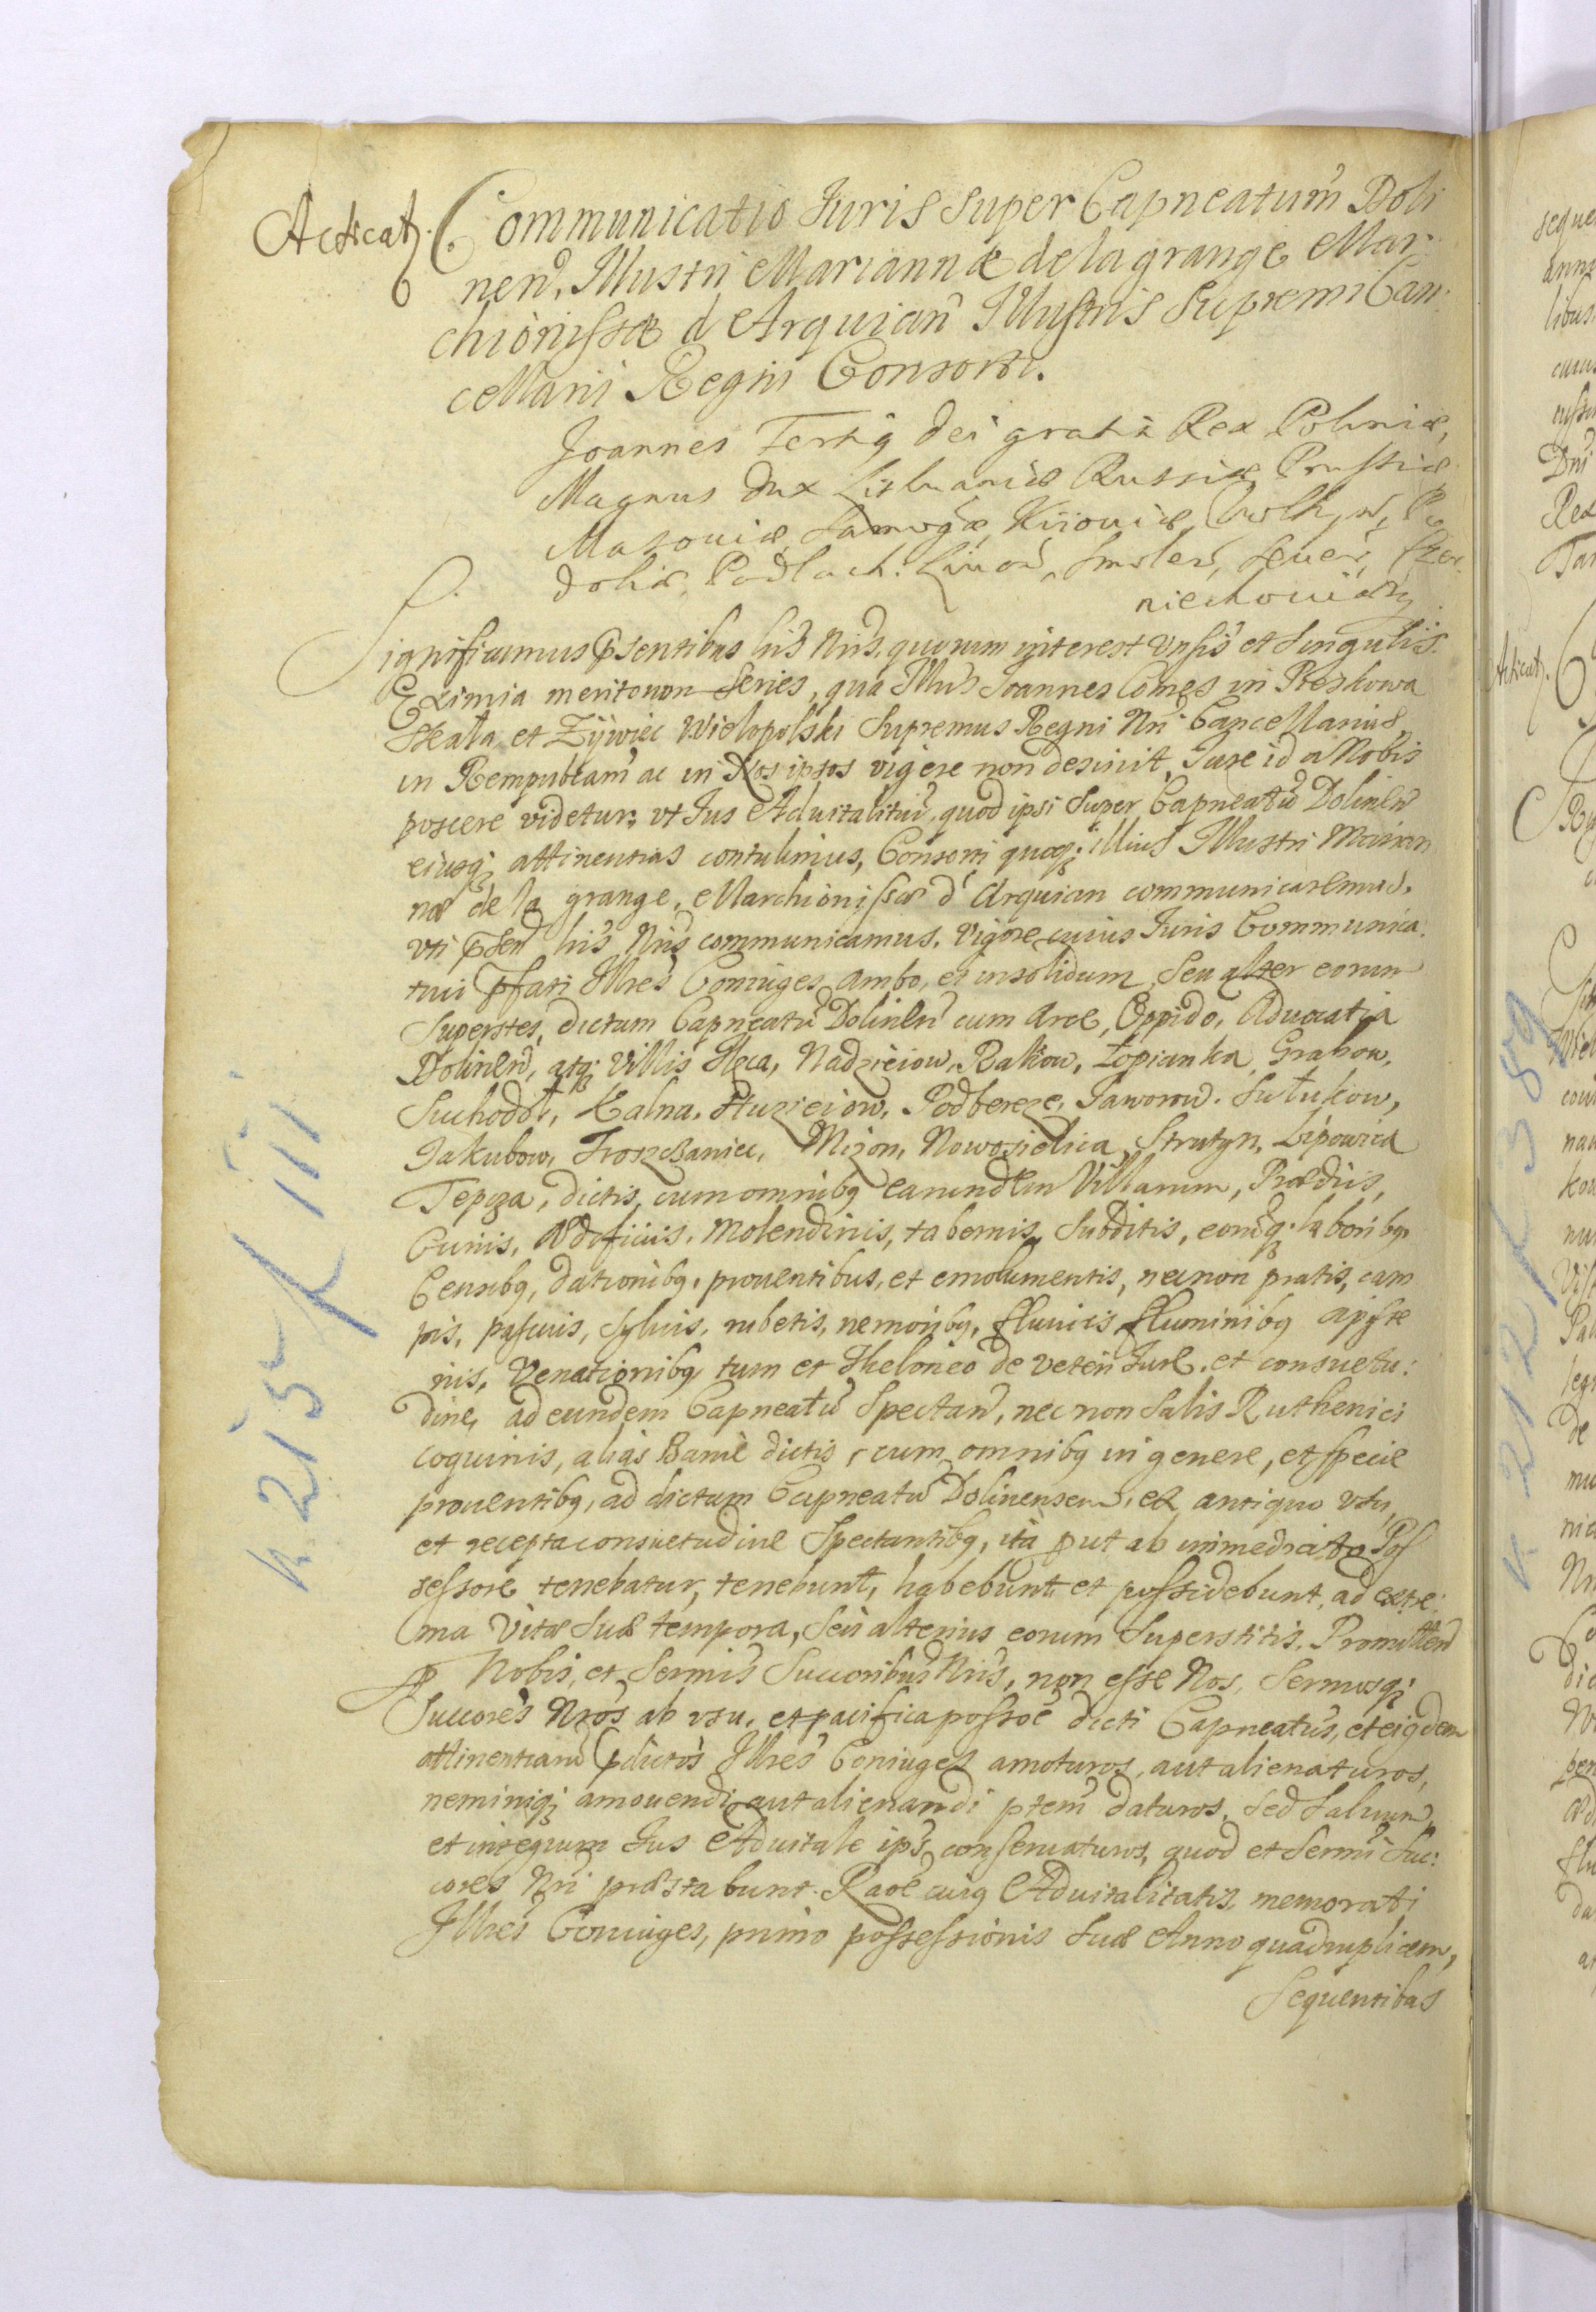 Acticatz. Communicatio Iuris super Capneatum Doli
nen̄. Illustri Mariannæ de la grange Mar
chionissæ d Arquian Illustris Supremi Can
cellarii Regni Consorti.
Joannes Tertig dei gratia Rex Poloniæ,
Magnus dux Lithuaniæ Russiæ, Prussiæ
Masoviæ, Samog̃æ, Kiioviæ, Wolhyn̄, Po
doliæ, Podlach: Livon̄, Smolen̄, Seuer̄, Czer
niechouiæq
Significamus p̄sentibus hīs Nrīs, quorum interest Vnsīs et Singulis.
Eximia meritorum Series, qua Illus Joannes Comes in Pieskowa
Skała et Żÿwiec Wielopolski Supremus Regni Nrī Cancellarius
in Rempublcam̄ ac in Nos ipsos vigere non desinit, Iure id a Nobis
poscere videtur, vt Ius Aduitalitiū, quod ipsi super Capneatū Dolinen̄
eiusq; attinentias contulimus, Consorti quoq; illius Illustri Marian
næ de la grange, Marchionissæ d' Arquian communicaremus.
vti p̄sen̄ hīs Nrīs communicamus. Vigore cuius Iuris Communica
tiui p̄fati Illres Coniuges ambo, et insolidum, Seu alter eorum
Superstes, dictum Capneatū Dolinen̄ cum Arce, Oppido, Aduocatia
Dolinen̄, atq; Villis Hęca, Nadzieiow, Rakow, Łopianka, Grabow,
Suchodoł, Kalna, Huzieiow, Podbereze, Jaworow. Sułukow,
Jakubow, Troszczaniec, Mizon, Nowosielica, Strutyn, Lipowica
Tepcza, dictis, cum omnibq earundem Villarum, Prædiis,
Curiis, Ædificiis, Molendinis, tabernis, Subditis, eorūq; laboribq,
Censibq, dationibq, prouentibus, et emolumentis, necnon pratis, cam
pis, pascuis, Syluis, rubetis, nemoribq, fluuiis, fluminibq apyste
riis, Venationibq, tum et Theloneo de veteri Iure, et consuetu:
dine, ad eundem Capneatū Spectan̄, nec non Salis Ruthenici
coquinis, aliàs Banie dictis, cum omnibq in genere, et specie
prouentibq, ad dictum Capneatū Dolinensem, ex antiquo vsu,
et recepta consuetudine Spectantibq, ita put ab immediato Pos
sessore tenebatur, tenebunt, habebunt et possidebunt, ad extre:
ma Vitæ Suæ tempora, Seù alterius eorum Superstitis. Promitten̄
p Nobis, et Sermīs Succoribus Nrīs, non esse Nos, Sermosq;
Succores Nros ab vsu, et pacifica possoē dicti Capneatus, et eiqdem
attinentiarū p̄dictos Illres Coniuges amoturos, aut alienaturos,
neminiq; amouendi, aut alienandi ptem̄ daturos. Sed Saluum,
et integrum Ius Aduitale ipīs conseruaturos, quod et Sermī Suc:
cores Nrī præstabunt. Raoē cuiq Aduitalitatis, memorati
Illres Coniuges, primo possessionis Suæ Anno quadruplicem,
Sequentibus
k 215 k III